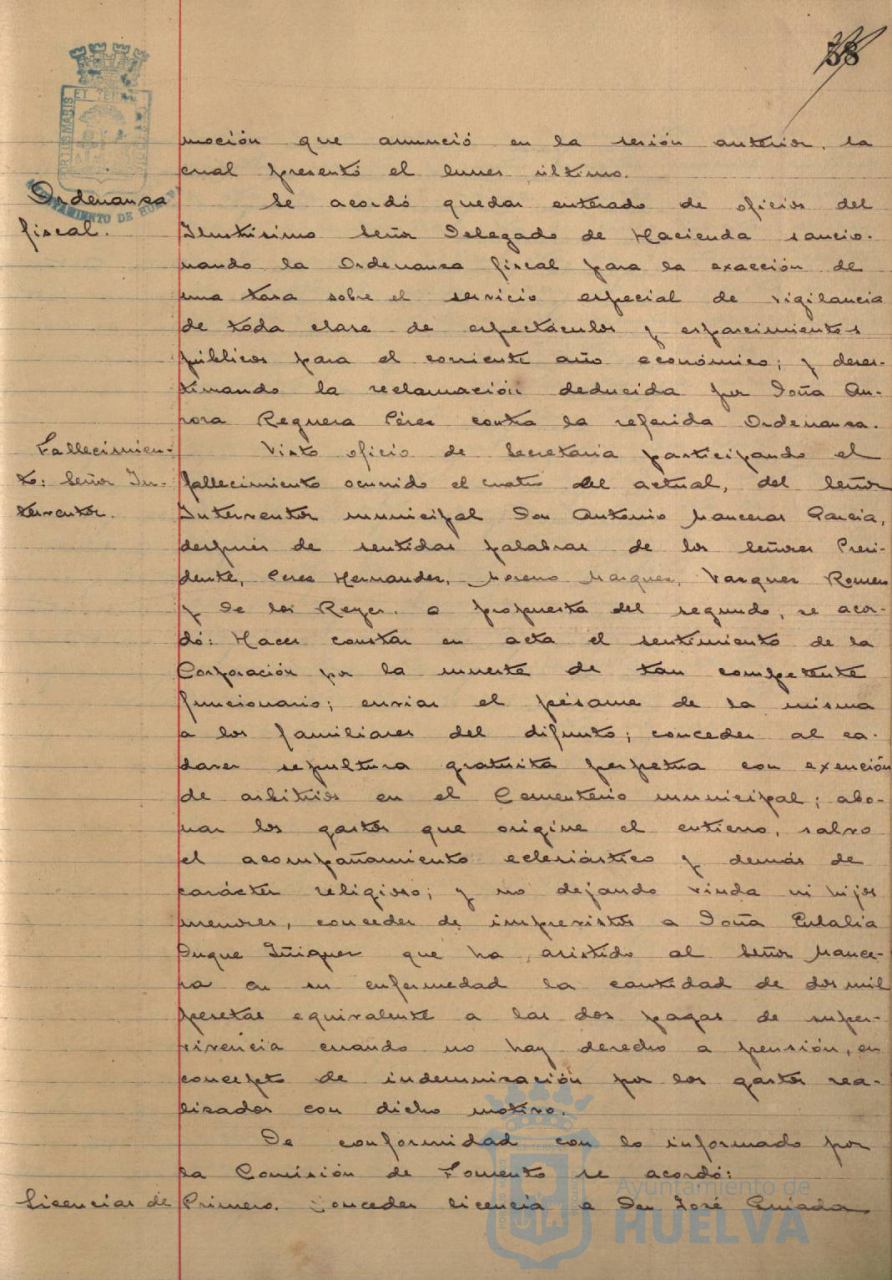 38
PORTUS MARIS ET TERR
AYUNTAMIENTO DE HUELVA
moción que anunció en la sesión anterior, la
cual presentó el lunes último.
Ordenanza
fiscal.
Se acordó quedar enterado de oficios del
Ilustrísimo Señor Delegado de Hacienda sancio-
nando la Ordenanza fiscal para la exacción de
una tasa sobre el servicio especial de vigilancia
de toda clase de espectáculos y esparcimientos
públicos para el corriente año económico; y deses-
timando la reclamación deducida por Doña Au-
rora Reguera Pérez contra la referida Ordenanza.
Fallecimien-
to: Señor In-
terventor.
Visto oficio de Secretaría participando el
fallecimiento ocurrido el cuatro del actual, del Señor
Interventor municipal Don Antonio Manceras García,
después de sentidas palabras de los Señores Presi-
dente, Perez Hernandez, Moreno Marquez, Vazquez Romero
y De los Reyes, a propuesta del segundo, se acor-
dó: Hacer constar en acta el sentimiento de la
Corporación por la muerte de tan competente
funcionario; enviar el pésame de la misma
a los familiares del difunto; conceder al ca-
daver sepultura gratuita perpetua con exención
de arbitrios en el Cementerio municipal; abo-
nar los gastos que origine el entierro, salvo
el acompañamiento eclesiástico y demás de
carácter religioso; y no dejando viuda ni hijos
menores, conceder de imprevistos a Doña Eulalia
Duque Iñiguez que ha asistido al Señor Mance-
ra en su enfermedad la cantidad de dos mil
pesetas equivalente a las dos pagas de super-
vivencia cuando no hay derecho a pensión, en
concepto de indemnización por los gastos rea-
lizados con dicho motivo.
De conformidad con lo informado por
la Comisión de Fomento se acordó:
Licencias de
Primero. Conceder licencia a Don José Quiada
Ayuntamiento de
HUELVA